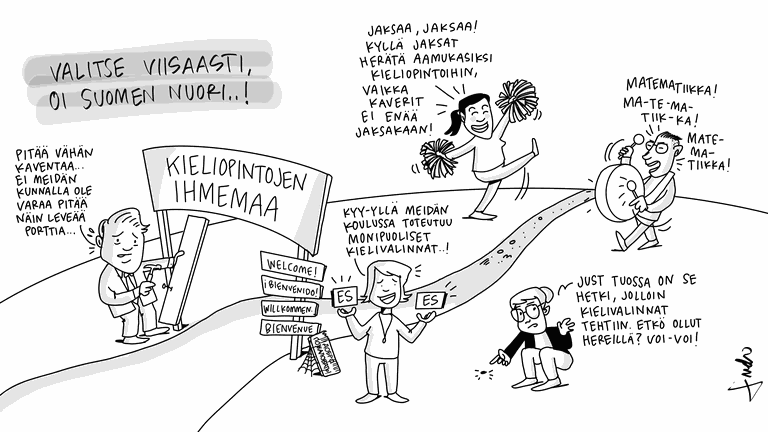 VALITSE VIISAASTI,
OI SUOMEN NUORI..!
JAKSAA, JAKSAA!
KYLLÄ JAKSAT
HERÄTÄ AAMUKASIKSI
KIELIOPINTOIHIN,
VAIKKA
KAVERIT
EI ENÄÄ
JAKSAKAAN!
MATEMATIIKKA!
MA-TE-MA-
TIIK-KA!
MATE-
MA-
TIIKKA!
PITÄÄ VÄHÄN
KAVENTAA...
EI MEIDÄN
KUNNALLA OLE
VARAA PITÄÄ
NÄIN LEVEÄÄ
PORTTIA...
KIELIOPINTOJEN
IHMEMAA
KYY-YLLÄ MEIDÄN
KOULUSSA TOTEUTUU
MONIPUOLISET
KIELIVALINNAT..!
WELCOME!
¡BIENVENIDO!
WILLKOMMEN.
BIENVENUE
ES
ES
JUST TUOSSA ON SE
HETKI, JOLLOIN
KIELIVALINNAT
TEHTIIN. ETKÖ OLLUT
HEREILLÄ? VOI-VOI!